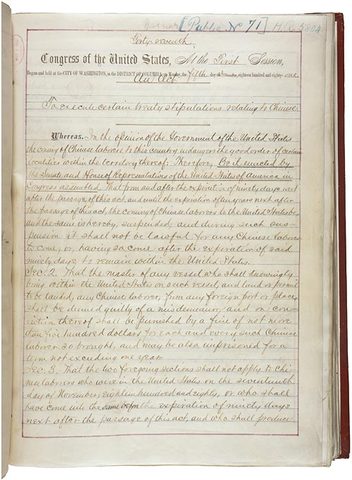 [Public No 71]
Forty-seventh
Congress of the United States, At the First Session,
Begun and held at the CITY OF WASHINGTON, in the DISTRICT OF COLUMBIA, on Monday, the fifth day of December, eighteen hundred and eighty-one
An Act
To execute certain treaty stipulations relating to Chinese.
Whereas, In the opinion of the Government of the United States
the coming of Chinese laborers to this country endangers the good order of certain
localities within the territory thereof: Therefore, Be it enacted by
the Senate and House of Representatives of the United States of America in
Congress assembled, That from and after the expiration of ninety days next
after the passage of this act, and until the expiration of ten years next after
the passage of this act, the coming of Chinese laborers to the United States be,
and the same is hereby, suspended; and during such sus-
pension it shall not be lawful for any Chinese laborer
to come, or, having so come after the expiration of said
ninety days, to remain within the United States.
Sec. 2. That the master of any vessel who shall knowingly
bring within the United States on such vessel, and land or permit
to be landed, any Chinese laborer, from any foreign port or place,
shall be deemed guilty of a misdemeanor, and on con-
viction thereof shall be punished by a fine of not more
than five hundred dollars for each and every such Chinese
laborer so brought, and may be also imprisoned for a
term not exceeding one year.
Sec. 3. That the two foregoing sections shall not apply to Chi-
nese laborers who were in the United States on the seventeenth
day of November, eighteen hundred and eighty, or who shall
have come into the same before the expiration of ninety days
next after the passage of this act, and who shall produce